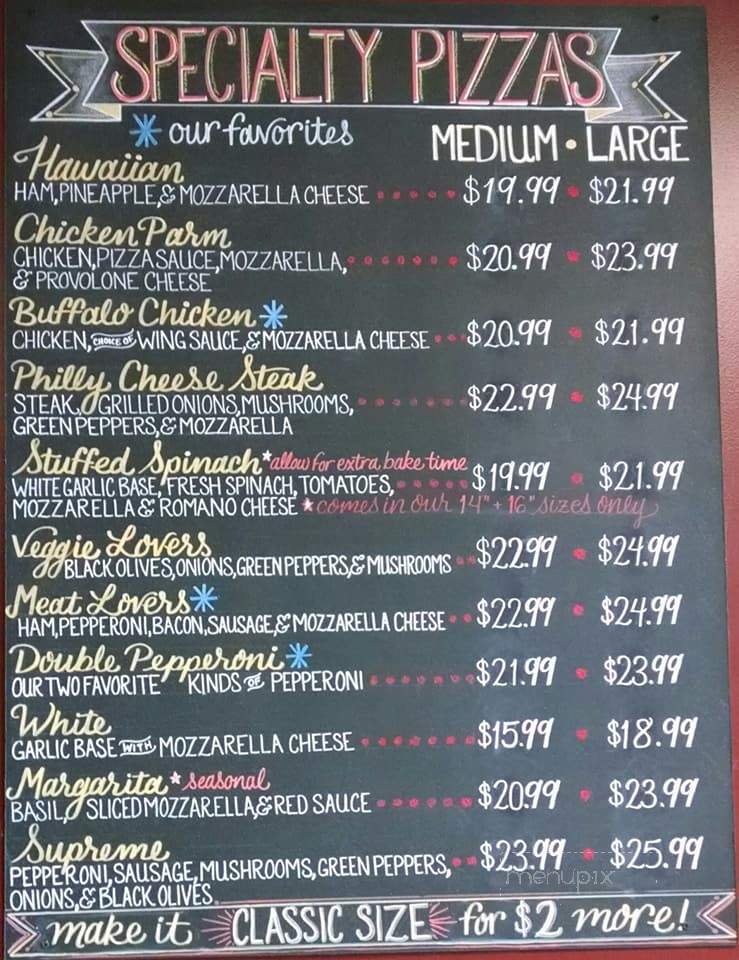 SPECIALTY PIZZAS
* our favorites
MEDIUM • LARGE
Hawaiian
HAM, PINEAPPLE, & MOZZARELLA CHEESE $19.99 • $21.99
Chicken Parm
CHICKEN, PIZZA SAUCE, MOZZARELLA, $20.99 • $23.99
& PROVOLONE CHEESE
Buffalo Chicken *
CHICKEN, CHOICE OF WING SAUCE, & MOZZARELLA CHEESE $20.99 • $21.99
Philly Cheese Steak
STEAK, GRILLED ONIONS, MUSHROOMS, $22.99 • $24.99
GREEN PEPPERS, & MOZZARELLA
Stuffed Spinach *allow for extra bake time
WHITE GARLIC BASE, FRESH SPINACH, TOMATOES, $19.99 • $21.99
MOZZARELLA & ROMANO CHEESE *comes in our 14" + 16" sizes only
Veggie Lovers
BLACK OLIVES, ONIONS, GREEN PEPPERS, & MUSHROOMS $22.99 • $24.99
Meat Lovers *
HAM, PEPPERONI, BACON, SAUSAGE, & MOZZARELLA CHEESE $22.99 • $24.99
Double Pepperoni *
OUR TWO FAVORITE KINDS OF PEPPERONI $21.99 • $23.99
White
GARLIC BASE WITH MOZZARELLA CHEESE $15.99 • $18.99
Margarita *seasonal
BASIL, SLICED MOZZARELLA, & RED SAUCE $20.99 • $23.99
Supreme
PEPPERONI, SAUSAGE, MUSHROOMS, GREEN PEPPERS, $23.99 • $25.99
ONIONS, & BLACK OLIVES.
menupix
make it CLASSIC SIZE for $2 more!